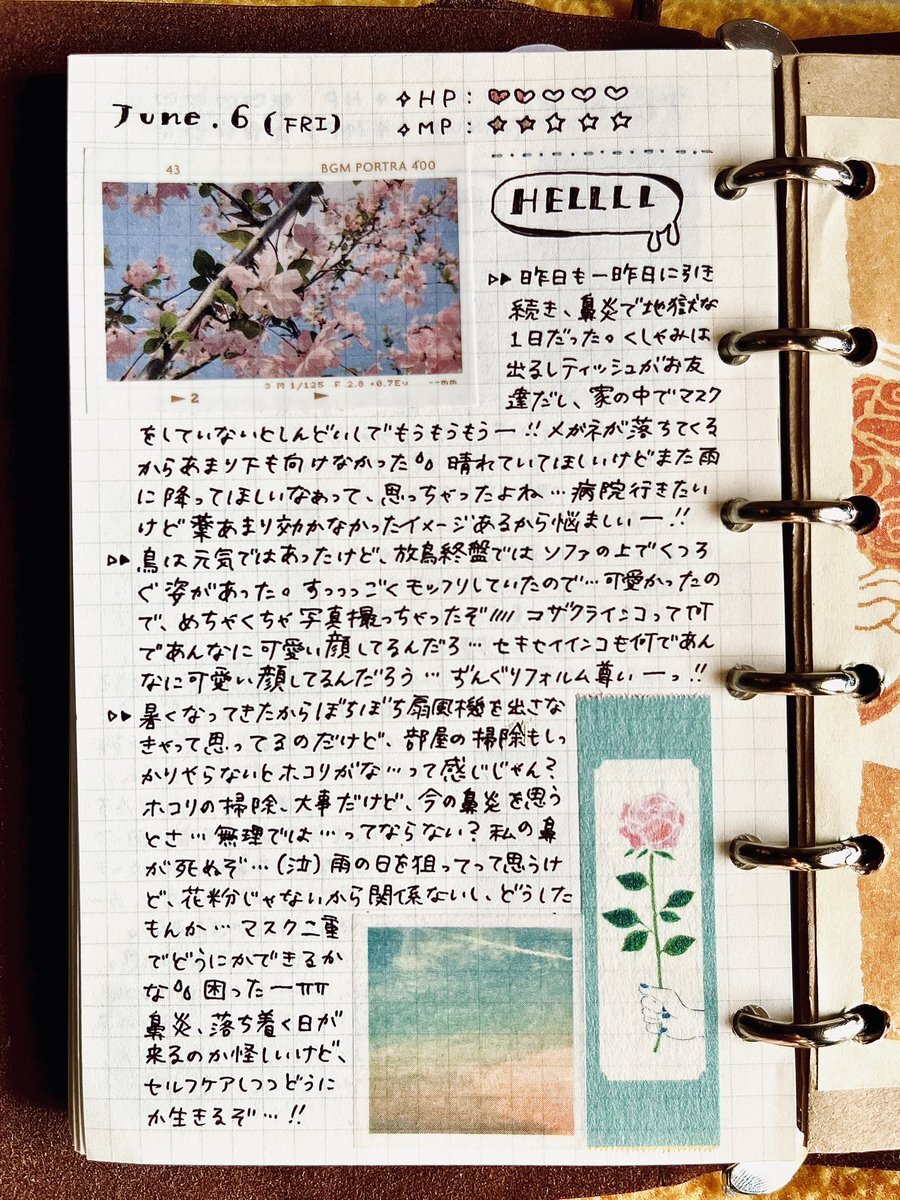 June.6 (FRI)
✧HP: ♥♥♡♡♡
✧MP: ★★☆☆☆
43 BGM PORTRA 400
3 M 1/125 F 2.8 +0.7Ev --mm
▶2 ▶
HELLLL
▷▷昨日も一昨日に引き
続き、鼻炎で地獄な
1日だった。くしゃみは
出るしティッシュがお友
達だし、家の中でマスク
をしていないとしんどいしでもうもうもうー!!メガネが落ちてくる
からあまり下も向けなかった%晴れていてほしいけどまた雨
に降ってほしいなぁって、思っちゃったよね…病院行きたい
けど薬あまり効かなかったイメージあるから悩ましいー!!
▷▷鳥は元気ではあったけど、放鳥終盤ではソファの上でくつろ
ぐ姿があった。すっっっごくモッフリしていたので…可愛かったの
で、めちゃくちゃ写真撮っちゃったぞ////コザクラインコって何
であんなに可愛い顔してるんだろ…セキセイインコも何であん
なに可愛い顔してるんだろう…ずんぐりフォルム尊いーっ!!
▷▷暑くなってきたからぼちぼち扇風機を出さな
きゃって思ってるのだけど、部屋の掃除もしっ
かりやらないとホコリがな…って感じじゃん?
ホコリの掃除、大事だけど、今の鼻炎を思う
とさ…無理では…ってならない?私の鼻
が死ぬぞ…(泣)雨の日を狙ってって思うけ
ど、花粉じゃないから関係ないし、どうした
もんか…マスク二重
でどうにかできるか
な%困ったーTTT
鼻炎、落ち着く日が
来るのか怪しいけど、
セルフケアしつつどうに
か生きるぞ…!!